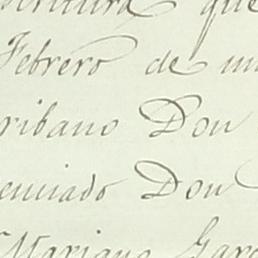 scritura que
Febrero de mi
cribano Don
cenciado Don
Mariano Garc